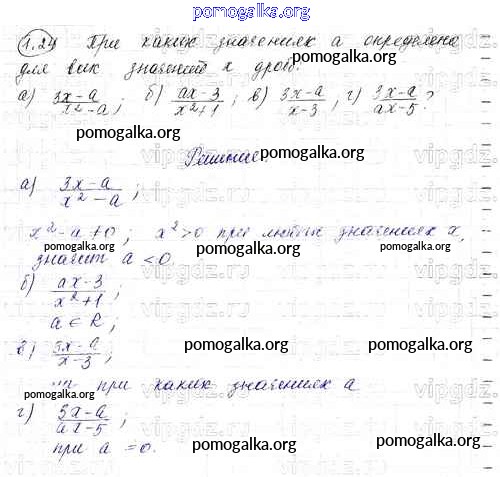 pomogalka.org
1.24 При каких значениях а определена
для всех значений х дробь:
а) 3x-a/x²-a; б) ax-3/x²+1; в) 3x-a/x-3; г) 3x-a/ax-5?
pomogalka.org
pomogalka.org
Решение
pomogalka.org
а) 3x-a/x²-a;
pomogalka.org
x²-a≠0; x²>0 при любых значениях x,
pomogalka.org
pomogalka.org
значит a<0.
б) ax-3/x²+1;
a∈R;
в) 3x-a/x-3;
pomogalka.org
pomogalka.org
при каких значениях а
pomogalka.org
г) 3x-a/ax-5;
pomogalka.org
pomogalka.org
при a=0.